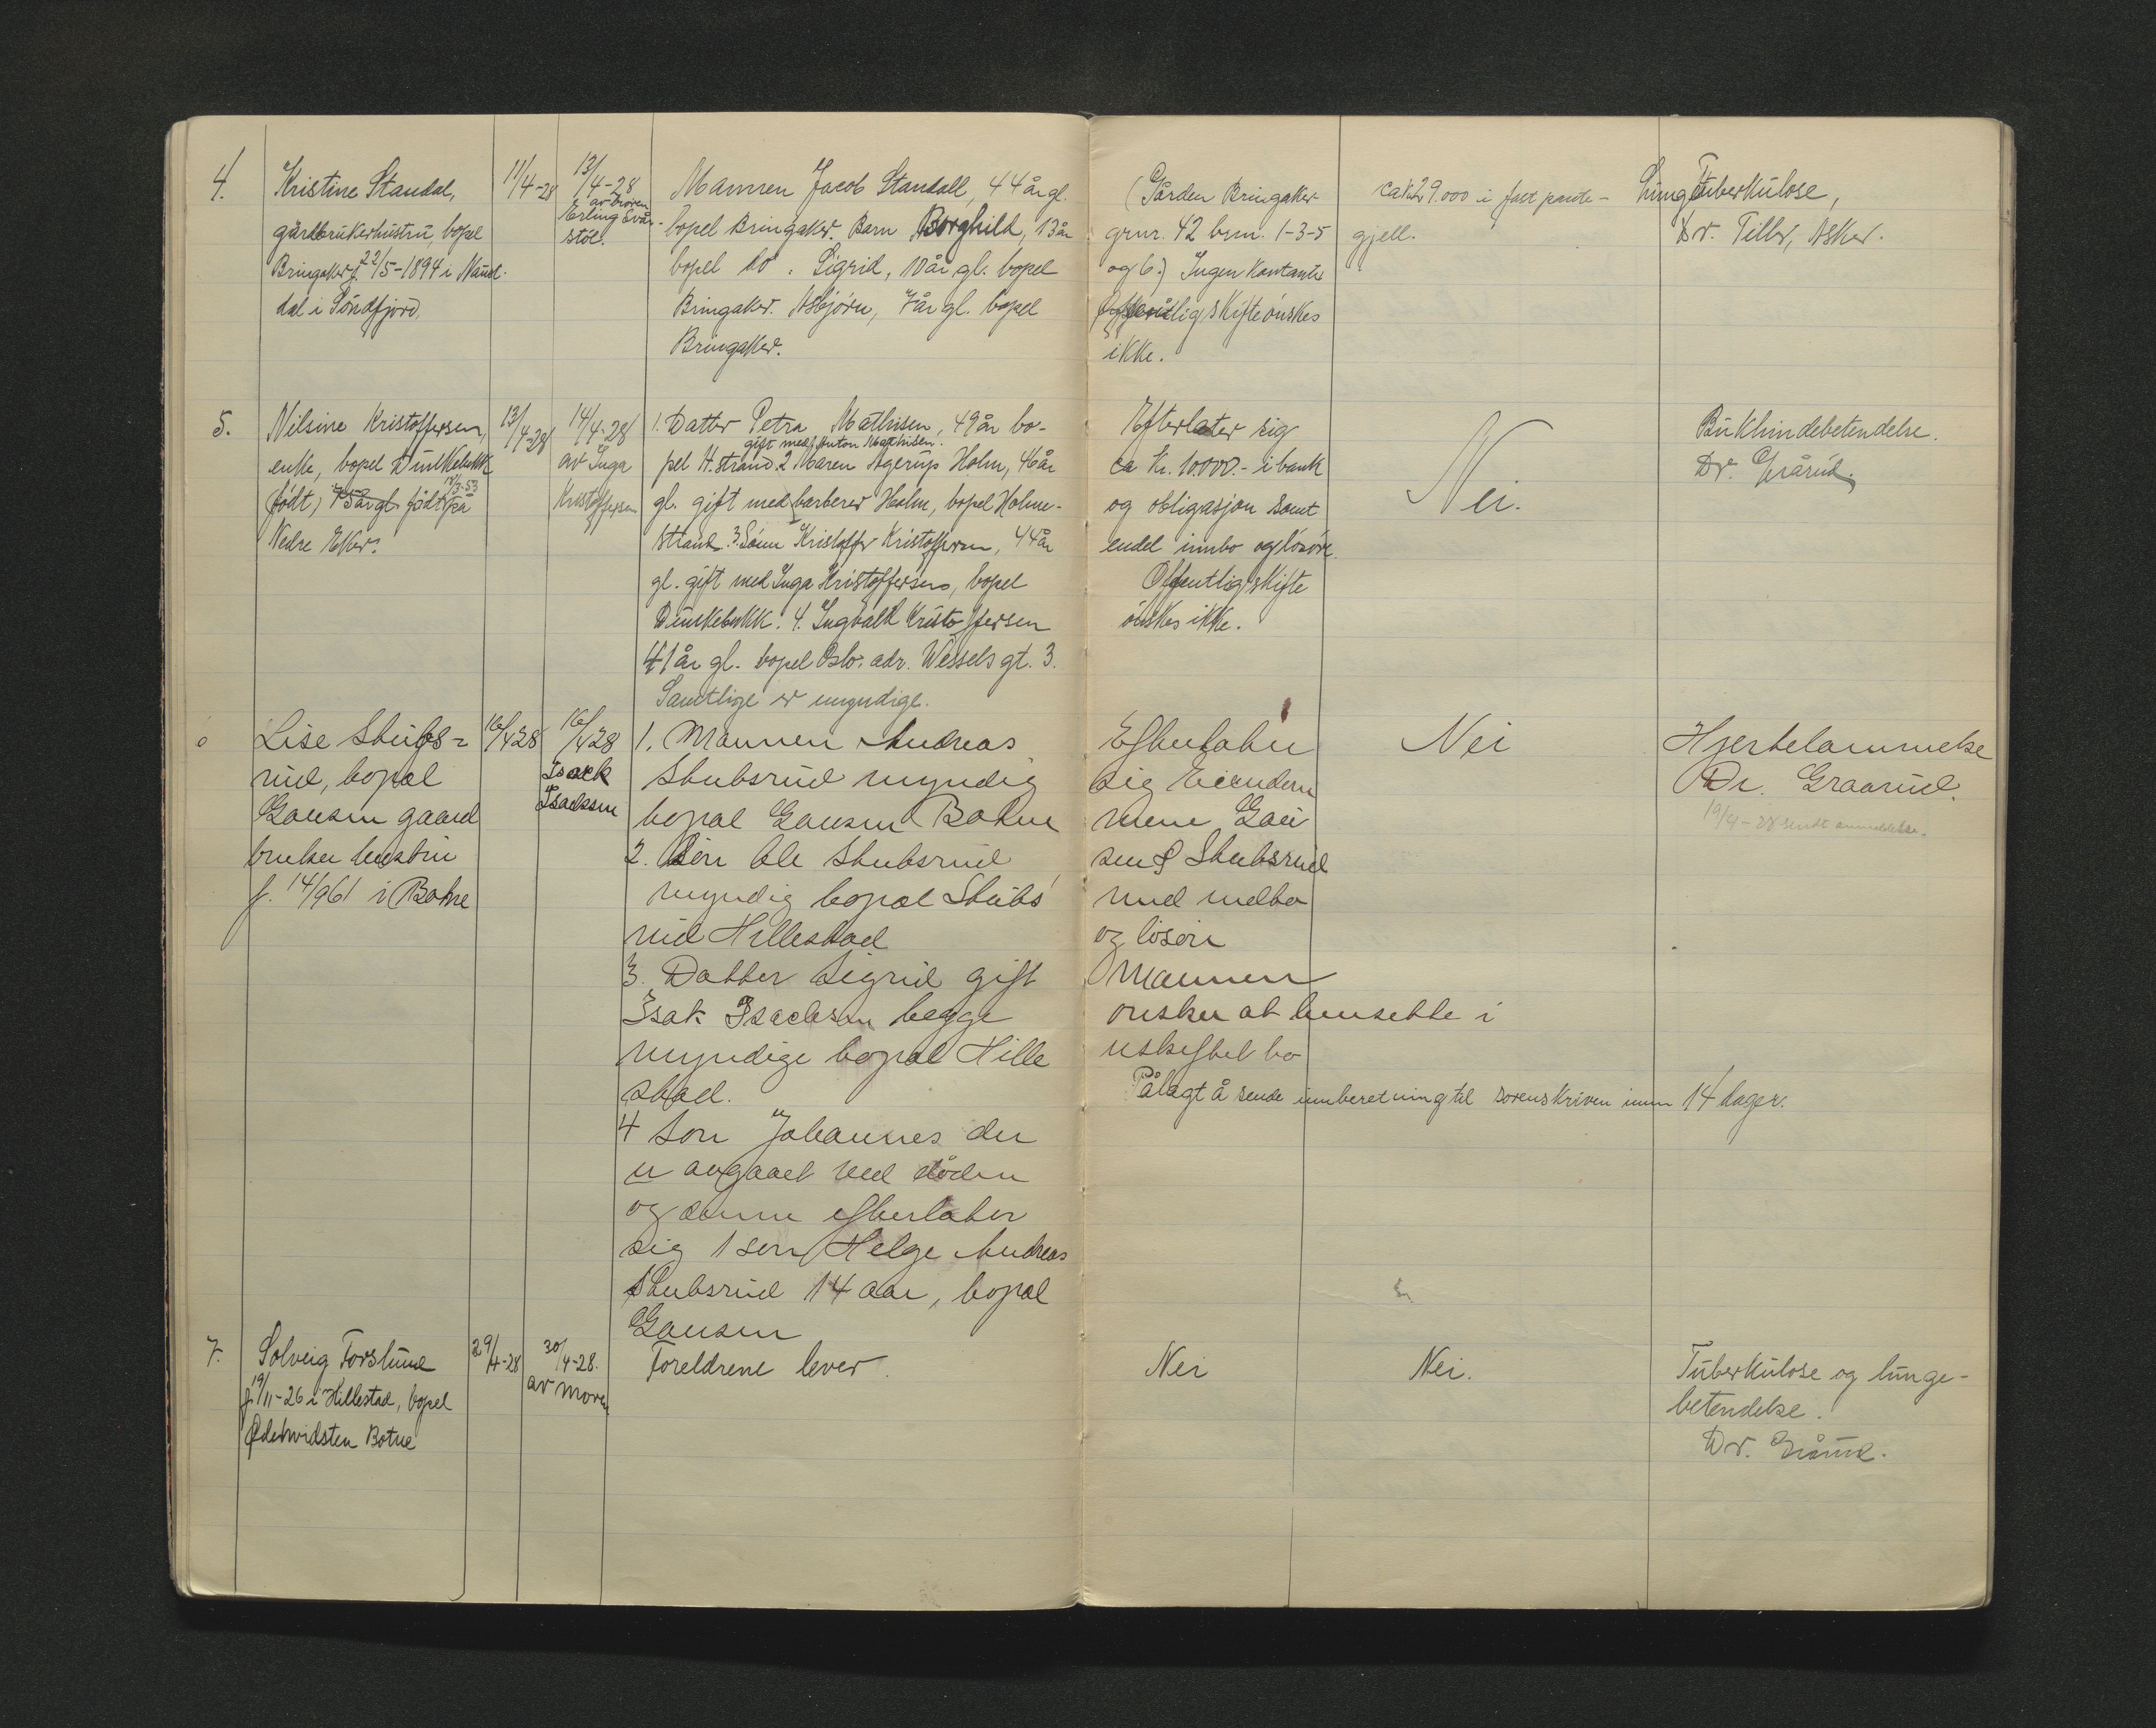 4.
Kristine Standal,
gårdbrukerhustru, bopel
Bringaker f. 22/5-1894 i Naust-
dal i Söndfjord.
11/4-28
13/4-28
av broren
Erling Svår-
stöl.
Mannen Jacob Standall, 44 år gl.
bopel Bringaker. Barn Borghild, 13 år
bopel do. Sigrid, 10 år gl. bopel
Bringaker. Asbjörn, 7 år gl. bopel
Bringaker.
(Gården Bringaker
grnr. 42 brnr. 1-3-5
og 6.) Ingen Kontanter
Offentlig skifte önskes
ikke.
ca Kr 29.000 i fast pante-
gjeld.
Lungetuberkulose,
Dr. Tiller, Asker.
5.
Nilsine Kristoffersen,
enke, bopel Dunkebekk
født, 75 år gl. født 18/3-53 på
Nedre Eker.
13/4-28
14/4-28
av Inga
Kristoffersen
1. Datter Petra Mathisen, 49 år bo-
gift med Anton Mathisen.
pel H.strand. 2 Maren Agerup Holm, 46 år
gl. gift med barberer Holm, bopel Holme-
strand. 3. Sönn Kristoffer Kristoffersen, 44 år
gl. gift med Inga Kristoffersen, bopel
Dunkebekk. 4. Ingvald Kristoffersen
41 år gl. bopel Oslo, adr. Wessels gt. 3.
Samtlige er myndige.
Efterlater sig
ca Kr. 10.000.- i bank
og obligasjon samt
endel innbo og lösöre.
Offentlig skifte
önskes ikke.
Nei.
Bukhindebetendelse.
Dr. Grårud.
Lise Stubs-
rud, bopal
Gausen gaard
bruker hustru
f. 14/9 61 i Botne
16/4 28
16/4 28
Isack
Isacksen
1. Mannen Andreas
Stubsrud myndig
bopal Gausen Botne
2. Sön Ole Stubsrud
myndig bopal Stubs
rud Hillestad
3. Datter Sigrid gift
Isak Isacksen begge
myndige bopal Hille
stad.
4 Sön Johannes der
er avgaaet ved döden
og denne efterlater
sig 1 sön Helge Andreas
Stubsrud 14 aar, bopal
Gausen
Efterlater
sig Eiendom
mene Gau
sen & Stubsrud
med indbo
og lösöre
Mannen
önsker at hensette i
uskiftet bo
Pålagt å sende innberetning til sorenskriveren innen 14 dager.
Nei
Hjertelammelse
Dr. Graarud.
19/4-28 sendt anmeldelse.
7.
Solveig Forslund
f. 19/11-26 i Hillestad, bopel
Ödekvidsten Botne
29/4-28
30/4-28.
av moren
Foreldrene lever.
Nei
Nei.
Tuberkulose og lunge-
betendelse.
Dr. Grårud.